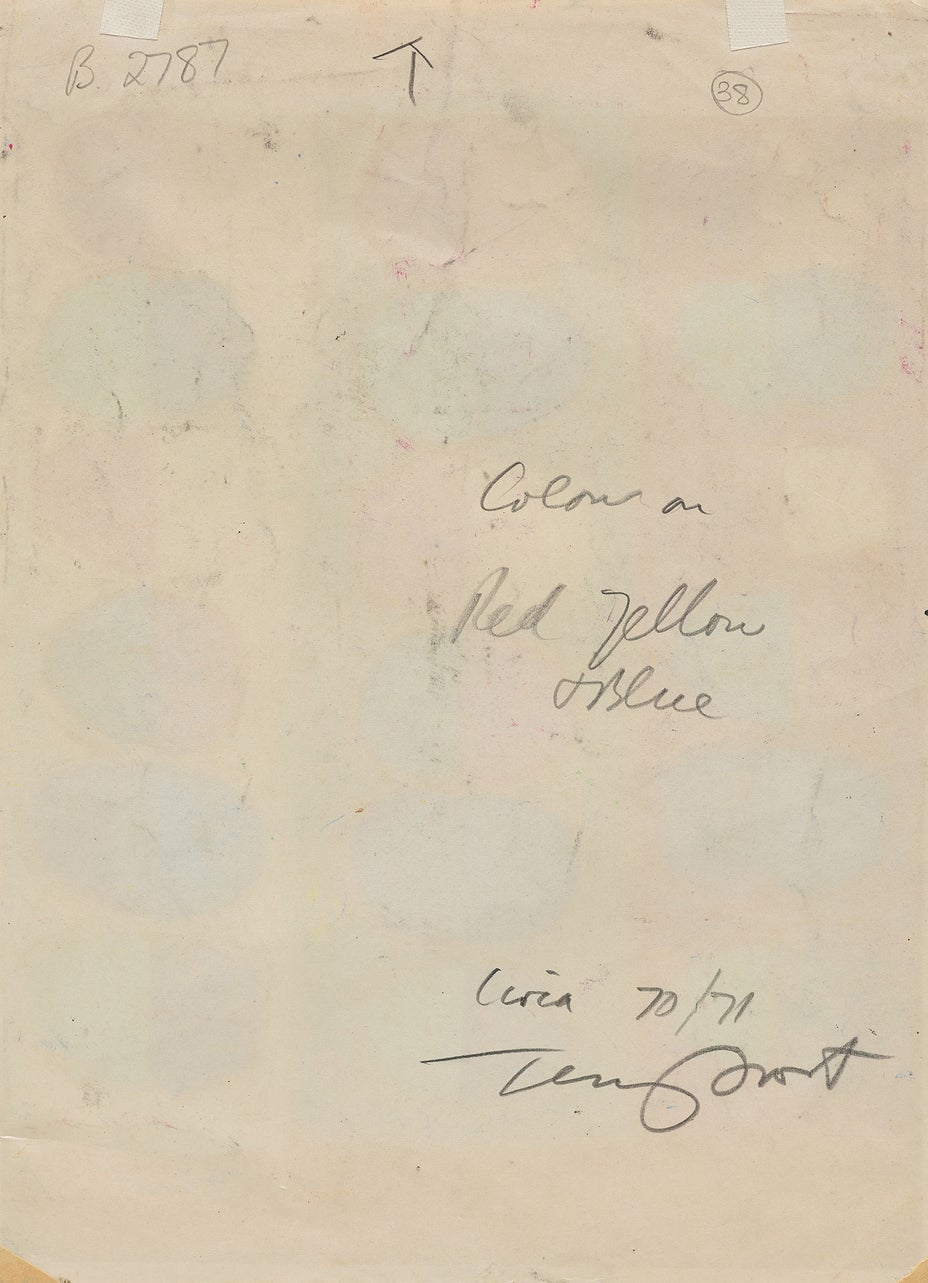 B. 2787 ↑ 38
Colour on
Red Yellow
+ Blue
Circa 70/71
Terry Frost